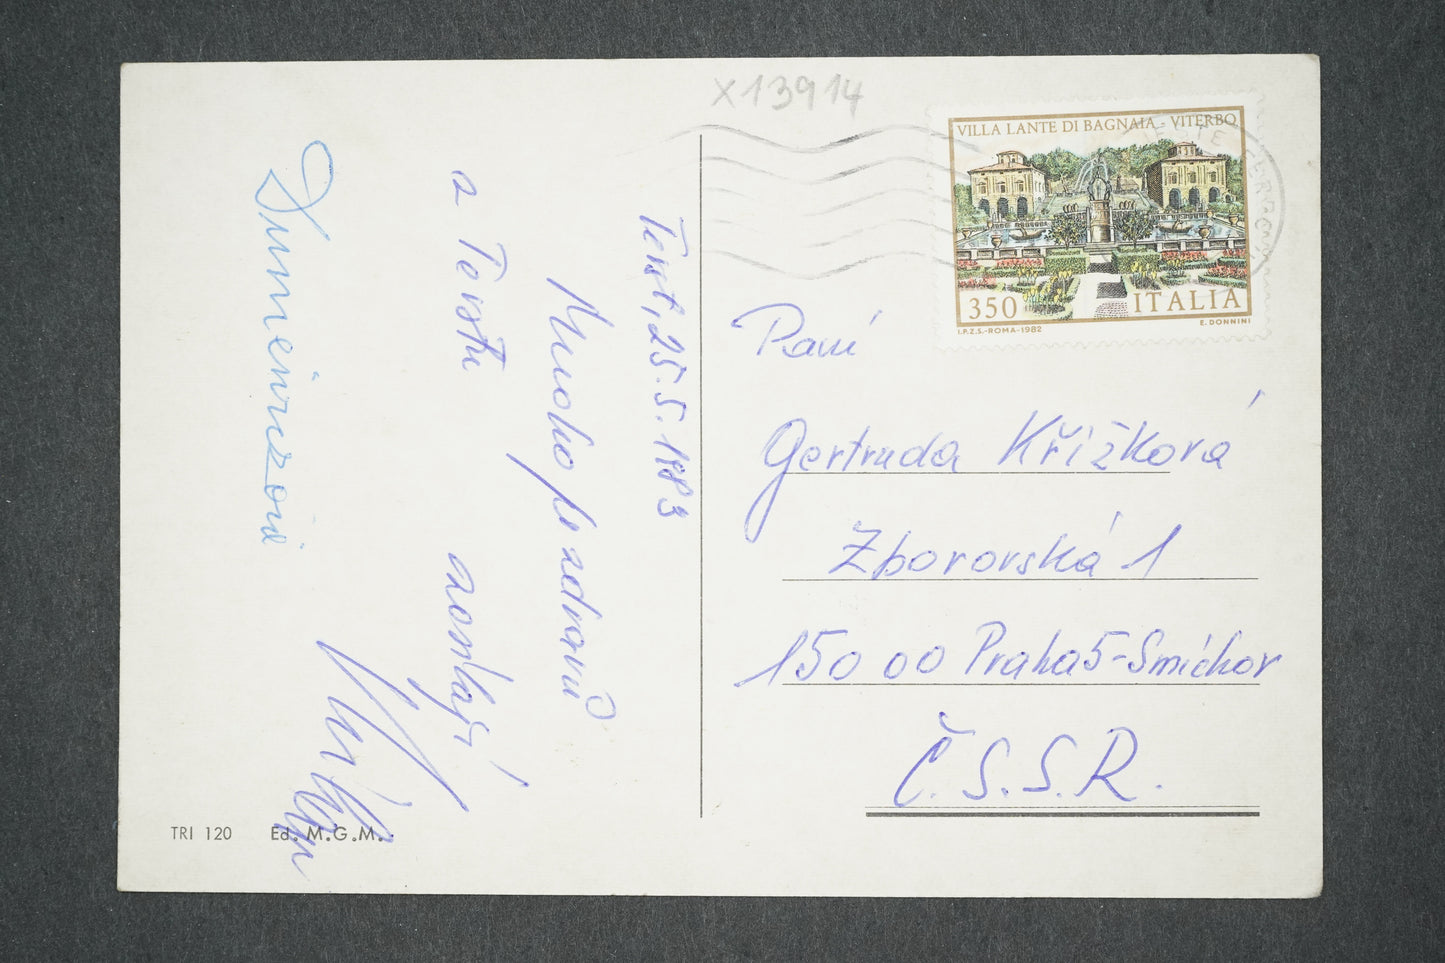 X13914
VILLA LANTE DI BAGNAIA - VITERBO
350 ITALIA
I.P.Z.S.-ROMA-1982 E. DONNINI
Terst, 25.5.1983
Mnoho pozdravů
z Terstu zasílají
Paní
Gertruda Křížková
Zborovská 1
150 00 Praha 5 - Smíchov
Č.S.S.R.
TRI 120 Ed. M.G.M.